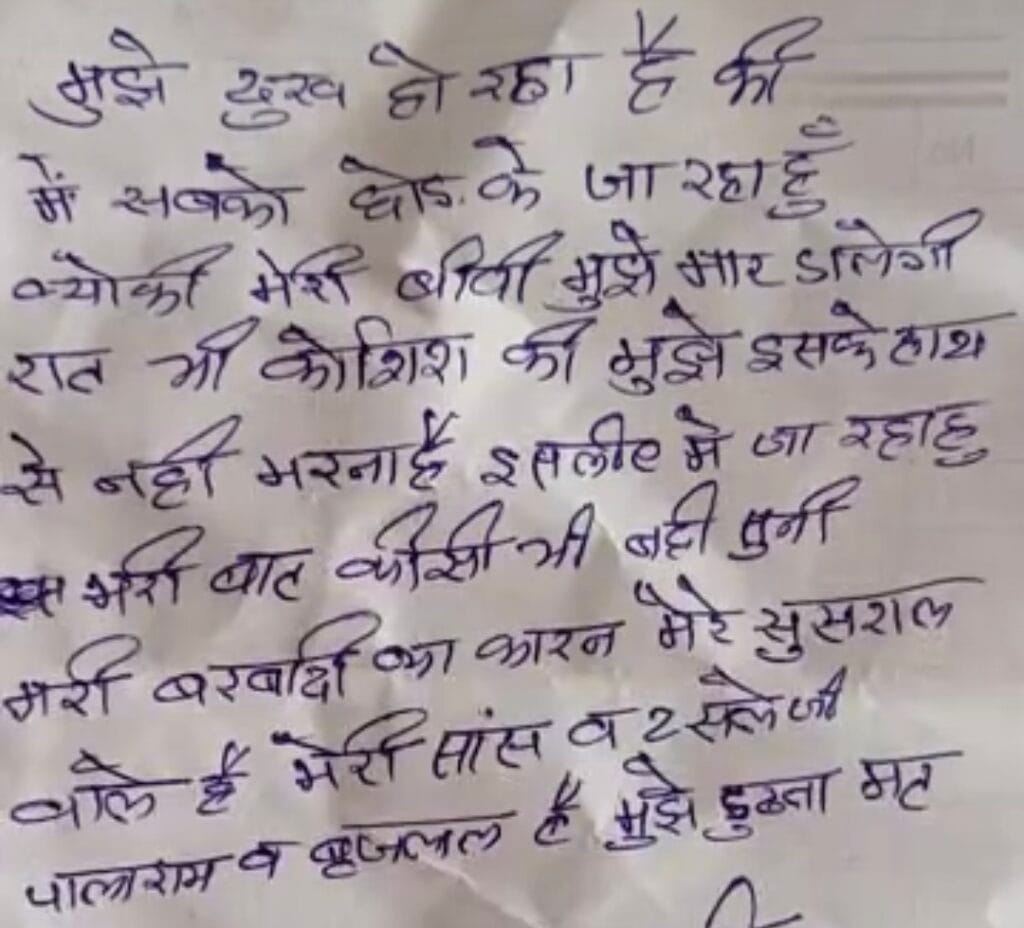 मुझे दुःख हो रहा है की
में सबको छोड. के जा रहा हुँ
क्योकी मेरी बीवी मुझे मार डालेगी
रात भी कोशिश की मुझे इसके हाथ
से नही मरना है इसलीए मे जा रहा हु
मेरी बात कीसी भी नही सुनी
मेरी बरबादी का कारन मेरे सुसराल
वाले है मेरी सांस व 2 साले जी
पालाराम व बृजलाल है मुझे ढुढना मत